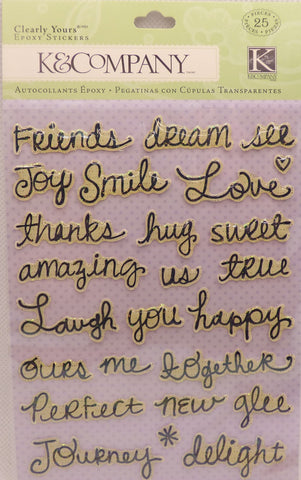 Clearly Yours
Epoxy Stickers
PIECES 25
K&COMPANY
K
K&COMPANY
Autocollants Époxy • Pegatinas con Cúpulas Transparentes
Friends dream see
Joy Smile Love
thanks hug sweet
amazing us true
Laugh you happy
ours me together
Perfect new glee
Journey * delight